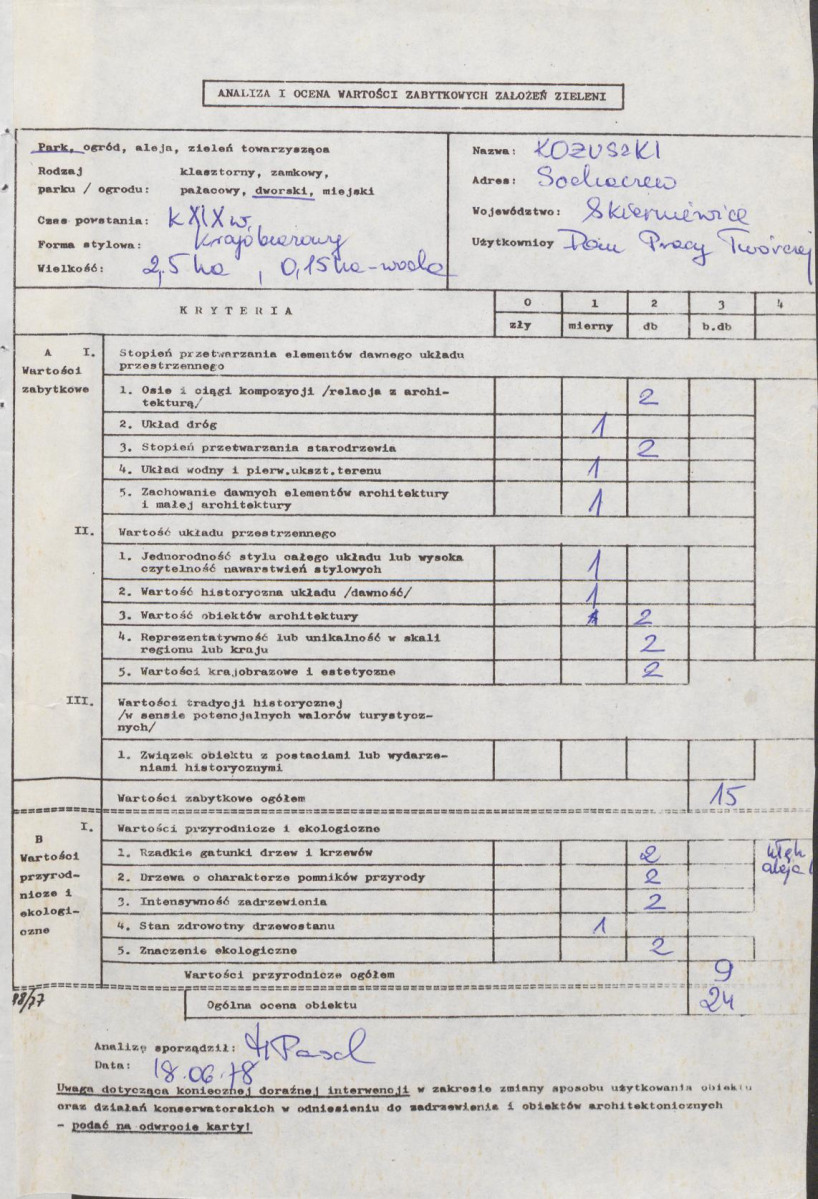 ANALIZA I OCENA WARTOŚCI ZABYTKOWYCH ZAŁOŻEŃ ZIELENI
Park, ogród, aleja, zieleń towarzysząca
Rodzaj klasztorny, zamkowy,
parku / ogrodu: pałacowy, dworski, miejski
Czas powstania: K XIX w.
Forma stylowa: Krajobrazowy
Wielkość: 2,5 ha , 0,15 ha - woda
Nazwa: KOZUSZKI
Adres: Sochaczew
Województwo: Skierniewice
Użytkownicy Dom Pracy Twórczej
KRYTERIA 0 1 2 3 4
zły mierny db b.db
A I. Stopień przetwarzania elementów dawnego układu
Wartości przestrzennego
zabytkowe 1. Osie i ciągi kompozycji /relacja z archi-
tekturą/ 2
2. Układ dróg 1
3. Stopień przetwarzania starodrzewia 2
4. Układ wodny i pierw.ukszt.terenu 1
5. Zachowanie dawnych elementów architektury
i małej architektury 1
II. Wartość układu przestrzennego
1. Jednorodność stylu całego układu lub wysoka
czytelność nawarstwień stylowych 1
2. Wartość historyczna układu /dawność/ 1
3. Wartość obiektów architektury 2
4. Reprezentatywność lub unikalność w skali
regionu lub kraju 2
5. Wartości krajobrazowe i estetyczne 2
III. Wartości tradycji historycznej
/w sensie potencjalnych walorów turystycz-
nych/
1. Związek obiektu z postaciami lub wydarze-
niami historycznymi
Wartości zabytkowe ogółem 15
B I. Wartości przyrodnicze i ekologiczne
Wartości 1. Rzadkie gatunki drzew i krzewów 2
przyrod- 2. Drzewa o charakterze pomników przyrody 2 aleja
nicze i 3. Intensywność zadrzewienia 2
ekologi- 4. Stan zdrowotny drzewostanu 1
czne 5. Znaczenie ekologiczne 2
Wartości przyrodnicze ogółem 9
Ogólna ocena obiektu 24
Analizę sporządził:
Data: 18.06.78
Uwaga dotycząca koniecznej doraźnej interwencji w zakresie zmiany sposobu użytkowania obiektu
oraz działań konserwatorskich w odniesieniu do zadrzewienia i obiektów architektonicznych
- podać na odwrocie karty!